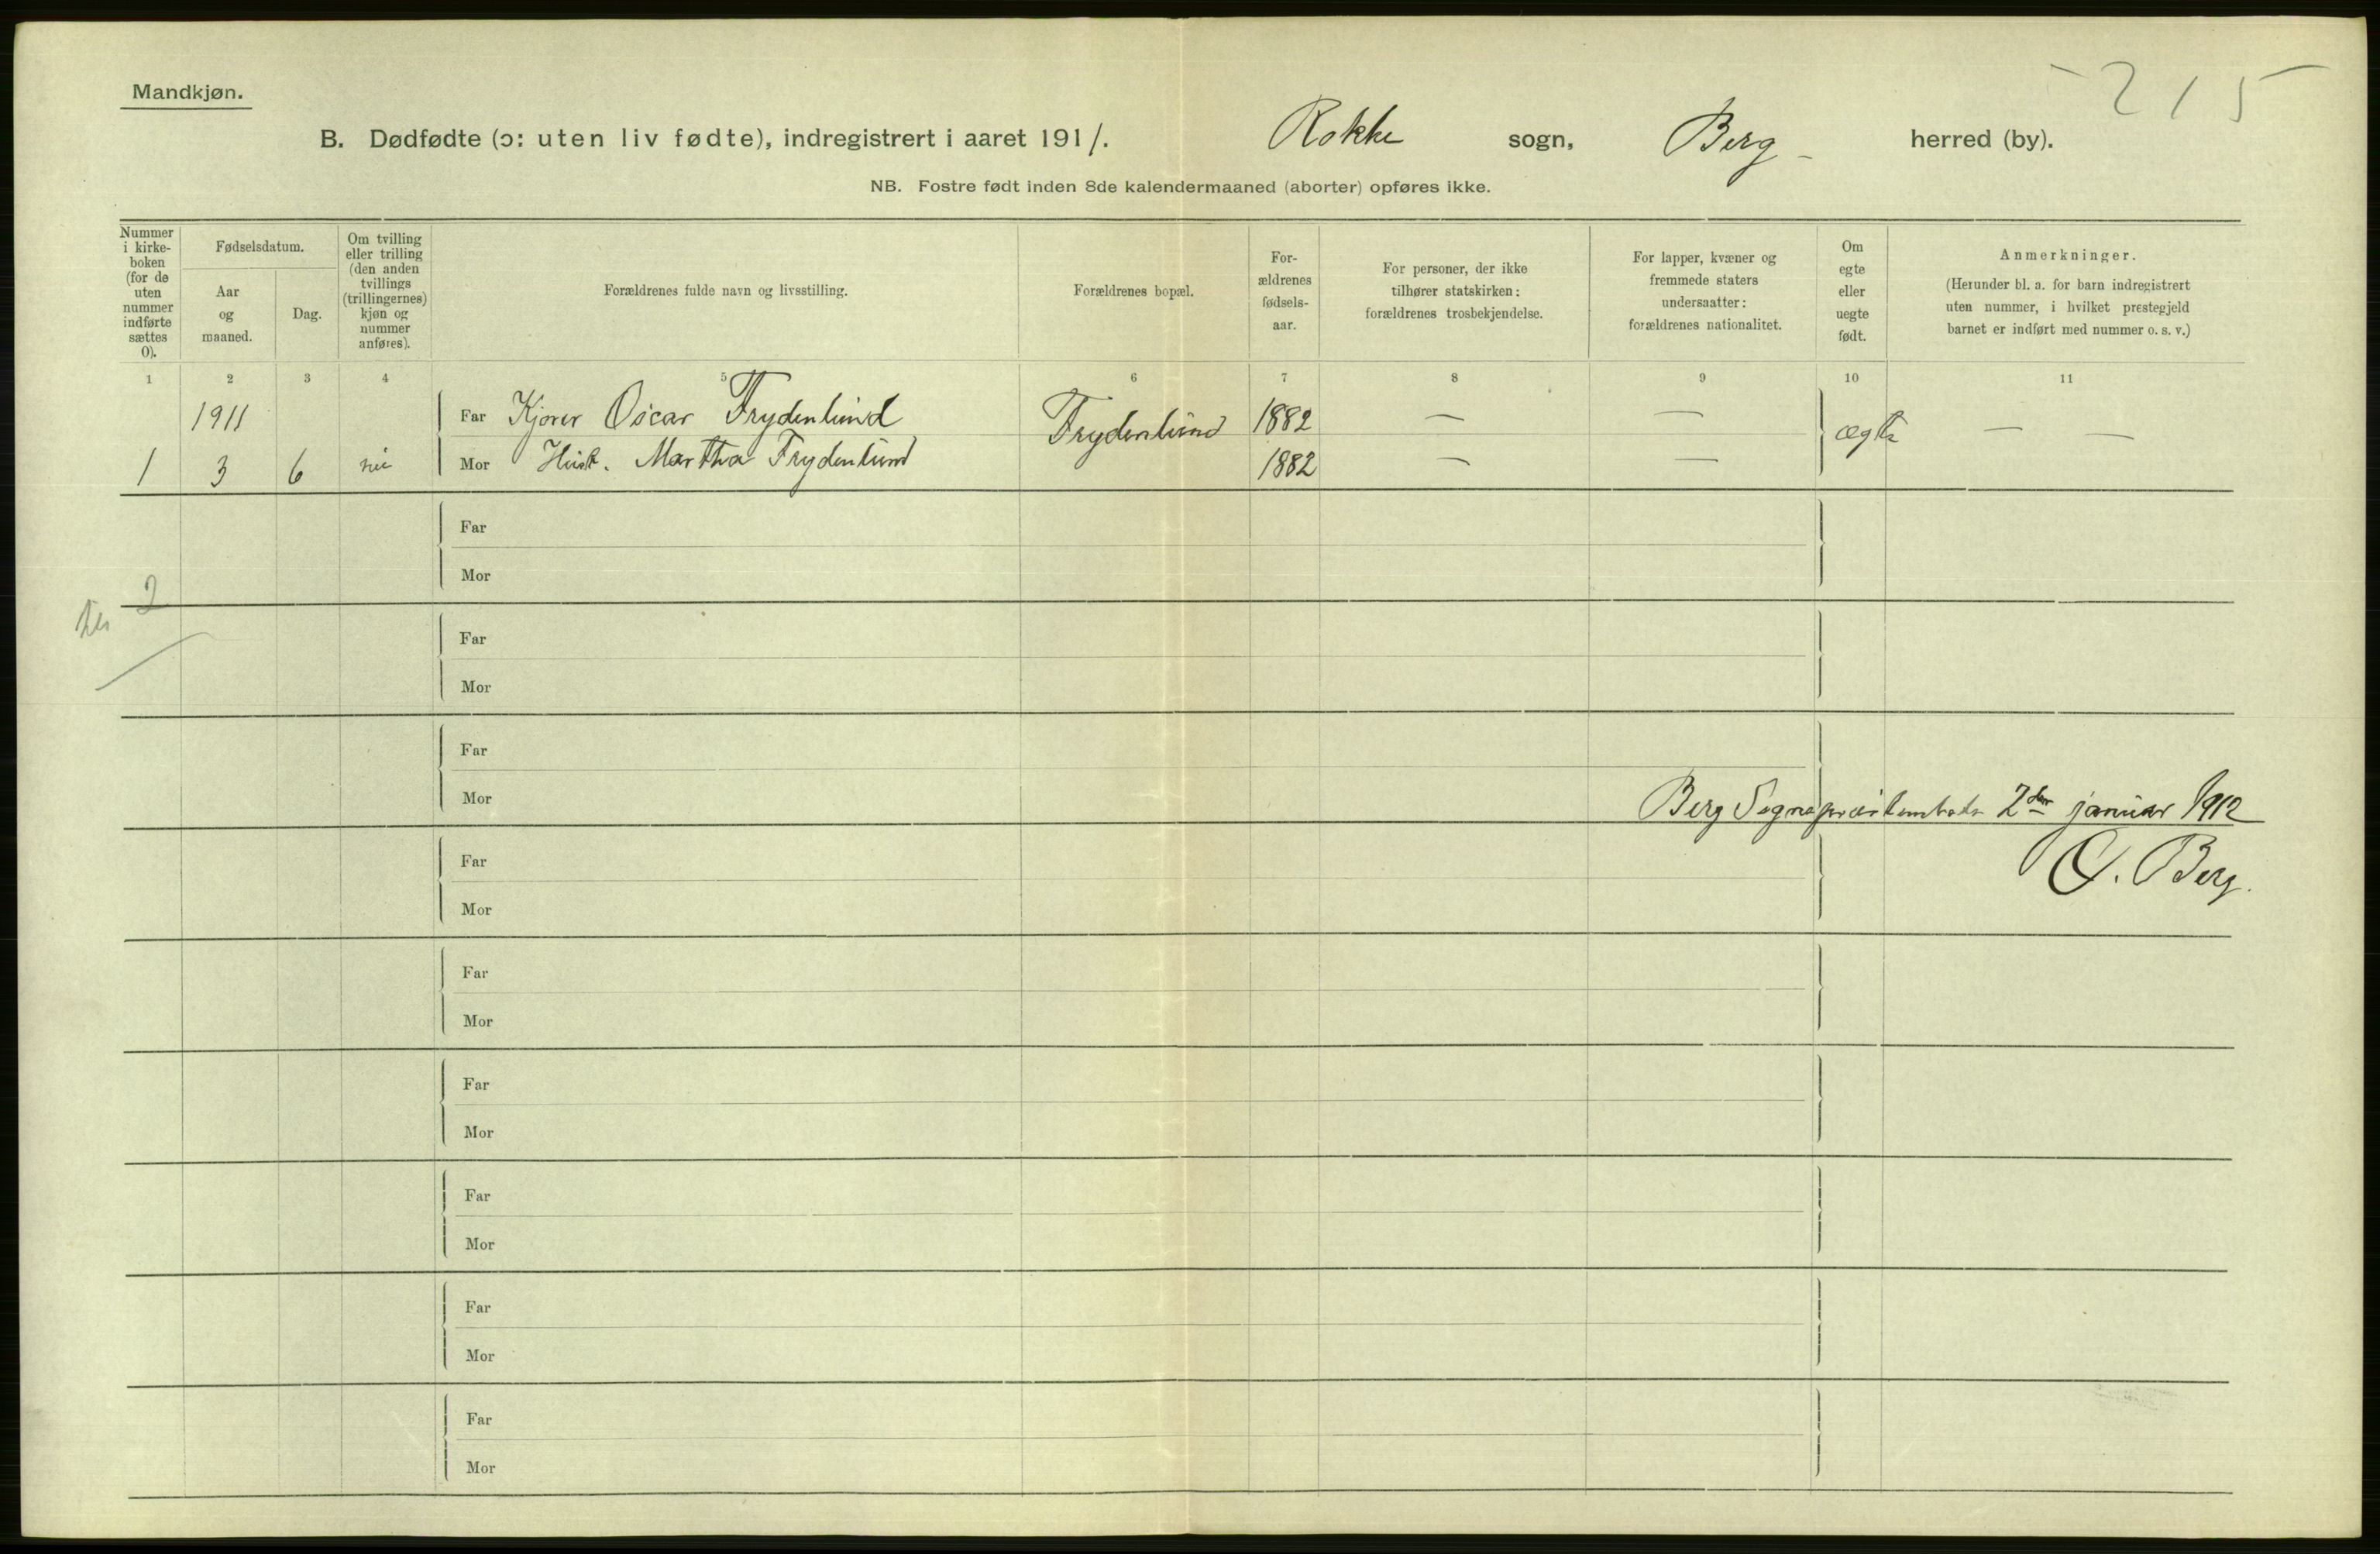 215
Mandkjøn.
B. Dødfødte (ɔ: uten liv fødte), indregistrert i aaret 1911. Rokke sogn, Berg herred (by).
NB. Fostre født inden 8de kalendermaaned (aborter) opføres ikke.
Nummer
i kirke-
boken
(for de
uten
nummer
indførte
sættes
0).
Fødselsdatum.
Aar
og
maaned.
Dag.
Om tvilling
eller trilling
(den anden
tvillings
(trillingernes)
kjøn og
nummer
anføres).
Forældrenes fulde navn og livsstilling.
Forældrenes bopæl.
For-
ældrenes
fødsels-
aar.
For personer, der ikke
tilhører statskirken:
forældrenes trosbekjendelse.
For lapper, kvæner og
fremmede staters
undersaatter:
forældrenes nationalitet.
Om
egte
eller
uegte
født.
Anmerkninger.
(Herunder bl. a. for barn indregistrert
uten nummer, i hvilket prestegjeld
barnet er indført med nummer o. s. v.)
1 2 3 4 5 6 7 8 9 10 11
1911 Far Kjører Oscar Frydenlund Frydenlund 1882 — — ægte — —
1 3 6 nei Mor Hustr. Martha Frydenlund 1882 — —
Far
Mor
2
Far
Mor
Far
Mor
Berg Sogneprestembete 2den januar 1912
Far
O. Berg.
Mor
Far
Mor
Far
Mor
Far
Mor
Far
Mor
Far
Mor